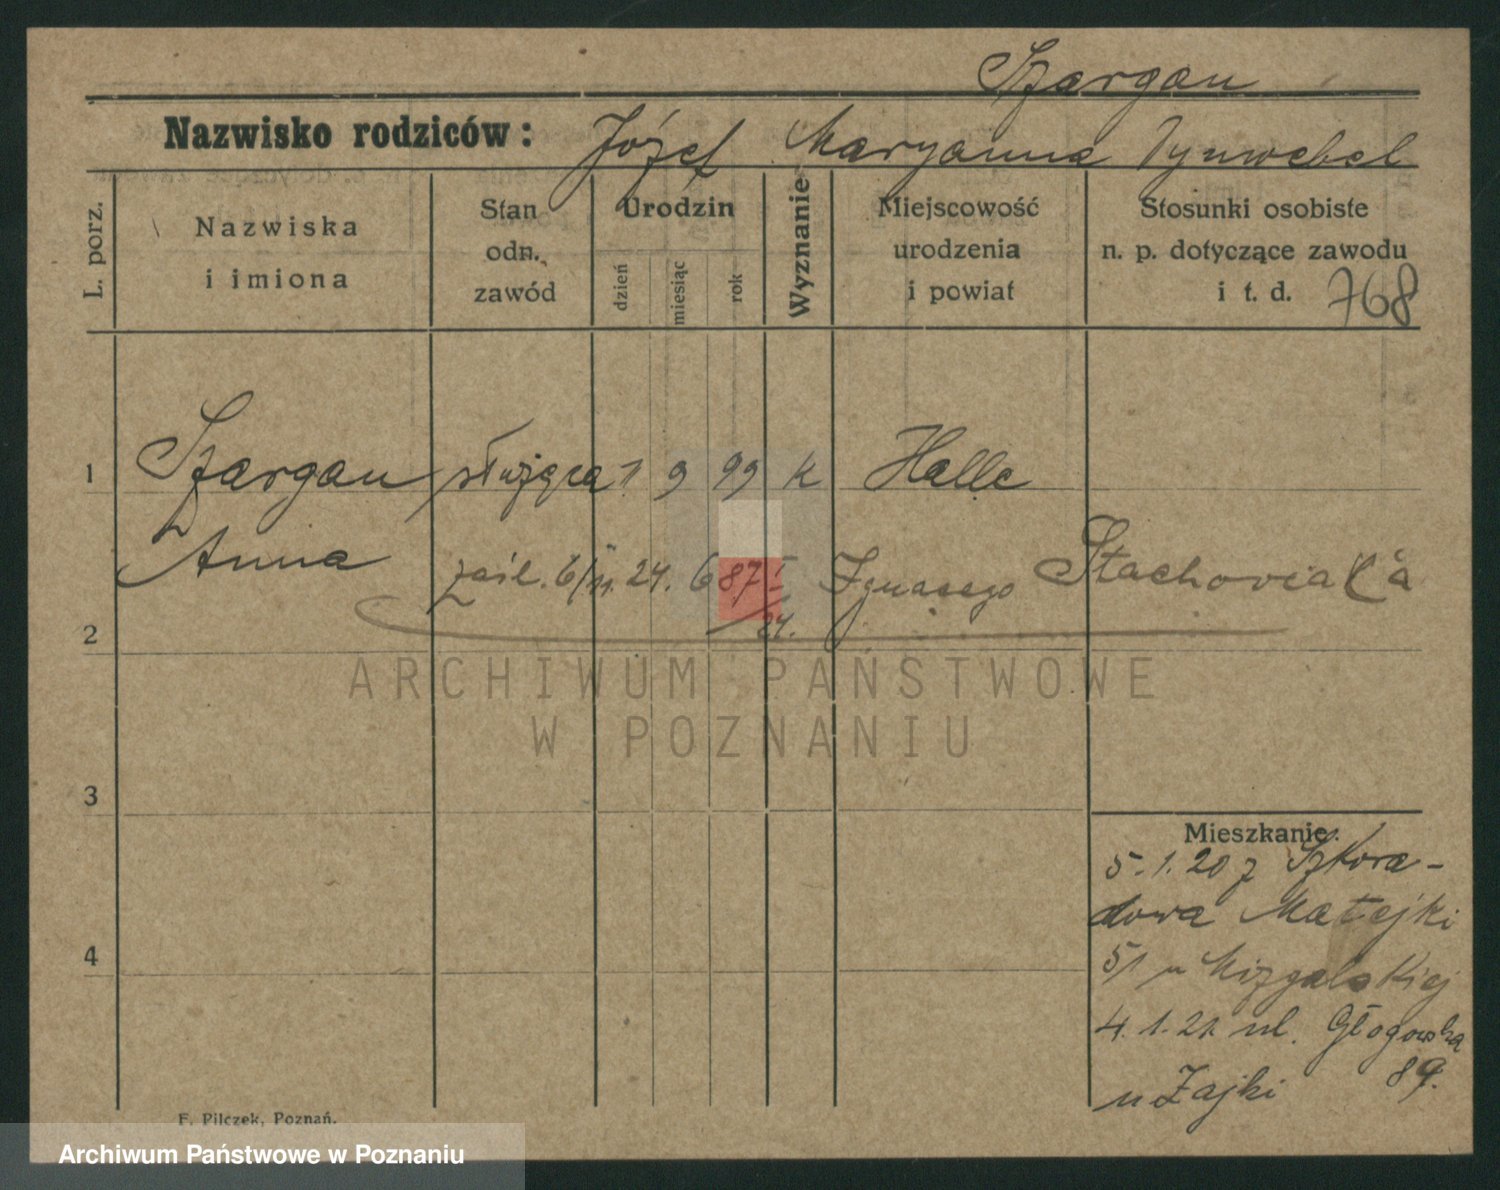 Szargan
Nazwisko rodziców: Józef Maryanna
L. porz.
Nazwiska
i imiona
Stan
odn.
zawód
Urodzin
dzień
miesiąc
rok
Wyznanie
Miejscowość
urodzenia
i powiat
Stosunki osobiste
n. p. dotyczące zawodu
i t. d. 768
1 Szargan służąca 1 9 99 k Halle
Anna
zaśl. 6/11. 24. 6 87 I/24. Ignacego Stachowiaka
2
3
4
Mieszkanie:
5.1.20 z Szkara-
dowa Matejki
51 u Mizgalskiej
4.1.21 ul. Głogowska
89.
u Zajki
F. Pilczek, Poznań.
ARCHIWUM PAŃSTWOWE
W POZNANIU
Archiwum Państwowe w Poznaniu